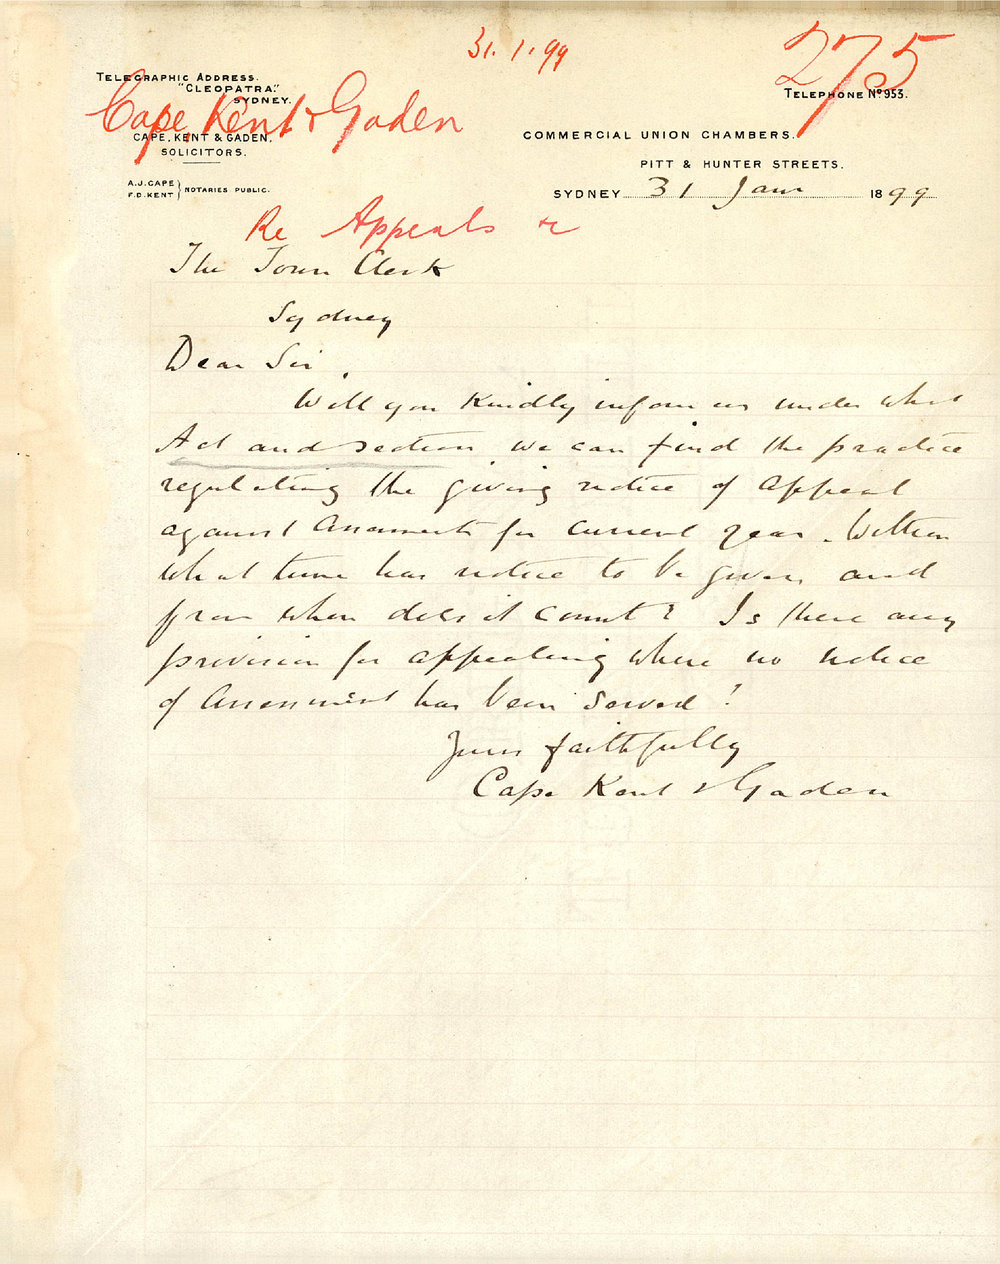 31.1.99
275
TELEGRAPHIC ADDRESS.
"CLEOPATRA."
SYDNEY.
TELEPHONE No 953.
Cape, Kent & Gaden
CAPE, KENT & GADEN,
SOLICITORS.
COMMERCIAL UNION CHAMBERS.
PITT & HUNTER STREETS.
A.J. CAPE
F.D. KENT } NOTARIES PUBLIC.
SYDNEY 31 Jany 1899
Re Appeals &c
The Town Clerk
Sydney
Dear Sir,
Will you kindly inform us under what
Act and section we can find the practice
regulating the giving notice of appeal
against Assessments for current year. Within
what time has notice to be given and
from when does it count? Is there any
provision for appealing where no notice
of Assessment has been served?
Yours faithfully
Cape Kent & Gaden